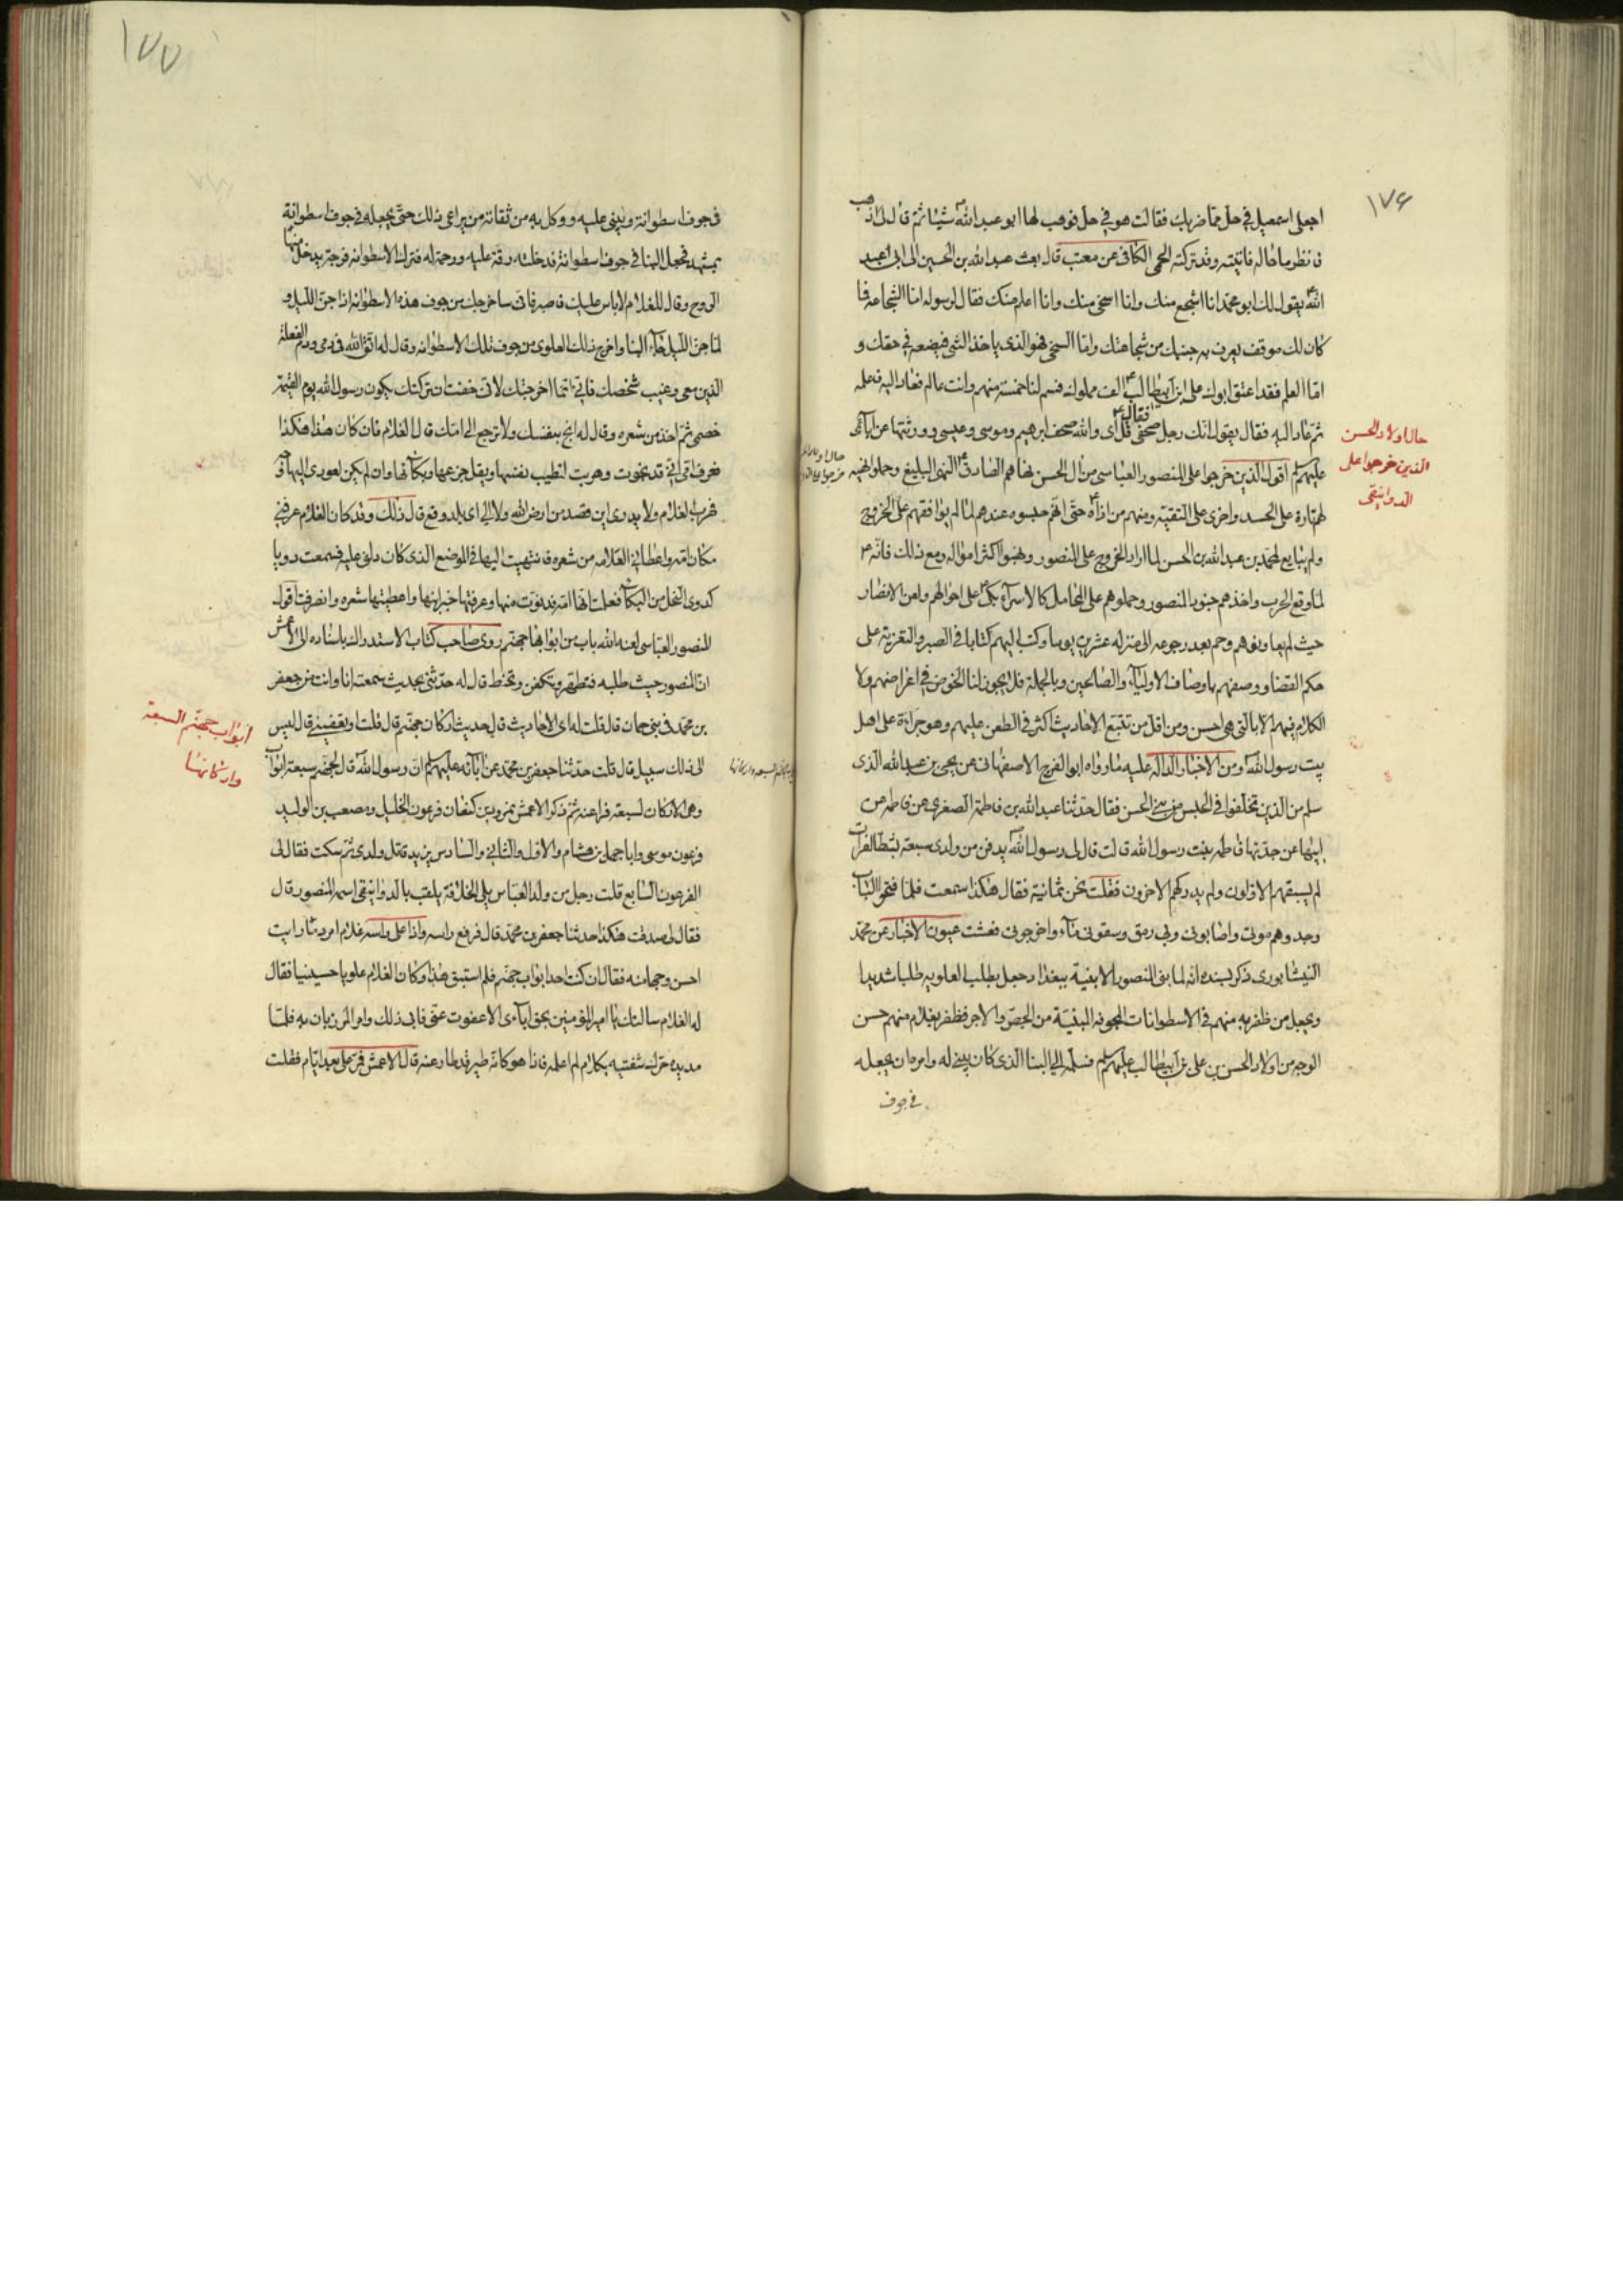 ١٧۶
اجعلى اسمعيل في حل مما ضربك فقالت هو في حل فوهب لها ابو عبد الله شيئا ثم قال لى اذهب
فانظر ما حاله فاتيته وقد تركته الحمى الكافى عن معتب قال بعث عبد الله بن الحسن الى ابى عبد
الله يقول لك ابو محمد انا اشجع منك وانا اسخى منك وانا اعلم منك فقال لرسوله اما الشجاعة فما
كان لك موقف يعرف به جبنك من شجاعتك واما السخى فهو الذى ياخذ الشى فيضعه في حقه و
اما العلم فقد اعتق ابوك على بن ابيطالب الف مملوك فسم لنا خمسة منهم وانت عالم فعاد اليه فاعلمه
ثم عاد اليه فقال يقول انك رجل صحفى فقال قل اى والله صحف ابرهيم وموسى وعيسى وورثتها عن آبائى
عليهم السلم اقول الذين خرجوا على المنصور العباسى من ال الحسن نهاهم الصادق النهى البليغ وحملوا نهيه
حال اولاد الحسن
الذين خرجوا على
الدوانيقى
لهم تارة على الحسد واخرى على التقية ومنهم من اذاه حتى انهم حبسوه عندهم لما لم يوافقهم على الخروج
ولم يبايع لمحمد بن عبد الله بن الحسن لما اراد الخروج على المنصور ونهبوا اكثر امواله ومع ذلك فانه
لما وقع الحرب واخذهم جنود المنصور وحملوهم على المحامل كالاسراء بكى على احوالهم ولعن الانصار
حيث لم يعاونوهم وحم بعد رجوعه الى منزله عشرين يوما وكتب اليهم كتابا في الصبر والتعزية على
حكم القضا ووصفهم باوصاف الاولياء والصالحين وبالجملة فلا يجوز لنا الخوض في اعراضهم ولا
الكلام فيهم الا بالتى هى احسن ومن اقل من تتبع الاحاديث اكثر في الطعن عليهم وهو جراءة على اهل
بيت رسول الله ومن الاخبار الدالة عليه ما رواه ابو الفرج الاصفهانى عن يحيى بن عبد الله الذى
سلم من الذين تخلفوا في الحبس من بنى الحسن فقال حدثنا عبد الله بن فاطمة الصغرى عن فاطمة عن
ابيها عن جدتها فاطمه بنت رسول الله قالت قال لى رسول الله يدفن من ولدى سبعة بشط الفرات
لم يسبقهم الاولون ولم يدركهم الاخرون فقلت نحن ثمانية فقال هكذا سمعت فلما فتحوا الباب
وجدوهم موتى واصابونى وبى رمق وسقونى ماء واخرجونى فعشت عيون الاخبار عن محمد
النيشابورى ذكر بسنده انه لما بنى المنصور الابنية ببغداد جعل يطلب العلويه طلبا شديدا
ويجعل من ظفر به منهم في الاسطوانات المجوفه المبنية من الجص والاجر فظفر بغلام منهم حسن
الوجه من اولاد الحسن بن على بن ابيطالب عليهم السلم فسلمه الى البنا الذى كان يبنى له وامره ان يجعله
في جوف
١٧٧
في جوف اسطوانة ويبنى عليه ووكل به من ثقاته من يراعى ذلك حتى يجعله في جوف اسطوانة
بمشهده فجعل البنا في جوف اسطوانة فدخلته رقة عليه ورحمة له فترك الاسطوانه فرجة يدخل منها
الروح وقال للغلام لا باس عليك فاصبر فانى ساخرجك من جوف هذه الاسطوانه اذا جن الليل و
لما جن الليل جاء البنا واخرج ذلك العلوى من جوف تلك الاسطوانه وقال له اتق الله في دمى ودم الفعلة
الذين معى وغيب شخصك فانى انما اخرجتك لانى خفت ان تركتك يكون رسول الله يوم القيمة
خصمى ثم اخذ من شعره وقال له انج بنفسك ولا ترجع الى امك قال الغلام فان كان هذا هكذا
فعرف امى انى قد نجوت وهربت لتطيب نفسها ويقل جزعها وبكائها وان لم يكن لعودى اليها وجه
فهرب الغلام ولا يدرى اين قصد من ارض الله ولا الى اى بلد وقع قال ذلك وقد كان الغلام عرفنى
مكان امه واعطانى العلامه من شعره فانتهيت اليها في الموضع الذى كان دلنى عليه فسمعت دويا
كدوى النحل من البكاء فعلمت انها امه فدنوت منها وعرفتها خبر ابنها واعطيتها شعره وانصرفت اقول
المنصور العباسى لعنه الله باب من ابوابها جهنم روى صاحب كتاب الاستدراك باسناده الى الاعمش
ان المنصور حيث طلبه فتطهر وتكفن وتحنط قال له حدثنى بحديث سمعته انا وانت من جعفر
بن محمد في بنى حمان قال قلت له اى الاحاديث قال حديث اركان جهنم قال قلت او تعفينى قال ليس
الى ذلك سبيل قال قلت حدثنا جعفر بن محمد عن آبائه عليهم السلم ان رسول الله قال لجهنم سبعة ابواب
ابواب جهنم السبعة
واركانها
وهى الاركان لسبعة فراعنه ثم ذكر الاعمش نمرود بن كنعان فرعون الخليل ومصعب بن الوليد
فرعون موسى وابا جهل بن هشام والاول والثانى والسادس يزيد قاتل ولدى ثم سكت فقال لى
الفرعون السابع قلت رجل من ولد العباس يلى الخلافة يلقب بالدوانيقى اسمه المنصور قال
فقال لى صدقت هكذا حدثنا جعفر بن محمد قال فرفع راسه واذا على راسه غلام امرد ما رايت
احسن وجها منه فقال ان كنت احد ابواب جهنم فلم استبق هذا وكان الغلام علويا حسينيا فقال
له الغلام سالتك يا امير المؤمنين بحق آبائى الا عفوت عنى فابى ذلك وامر المرزبان به فلما
مد يده حرك شفتيه بكلام لم اعلمه فاذا هو كانه طير قد طار عنه قال الاعمش فمر على بعد ايام فقلت